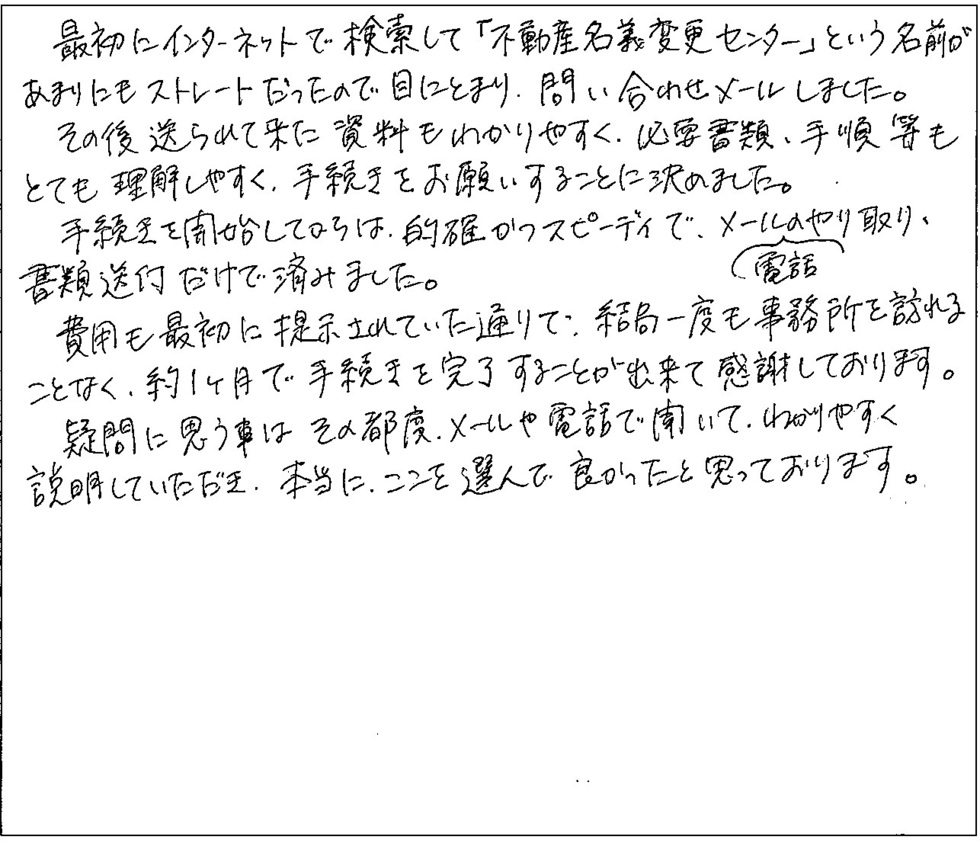 最初にインターネットで検索して「不動産名義変更センター」という名前が
あまりにもストレートだったので目にとまり、問い合わせメールしました。
その後送られて来た資料もわかりやすく、必要書類、手順等も
とても理解しやすく、手続きをお願いすることに決めました。
手続きを開始してからは、的確かつスピーディで、メールのやり取り、
(電話
書類送付だけで済みました。
費用も最初に提示されていた通りで、結局一度も事務所を訪れる
ことなく、約1ヶ月で手続きを完了することが出来て感謝しております。
疑問に思う事はその都度、メールや電話で聞いて、わかりやすく
説明していただき、本当に、ここを選んで良かったと思っております。